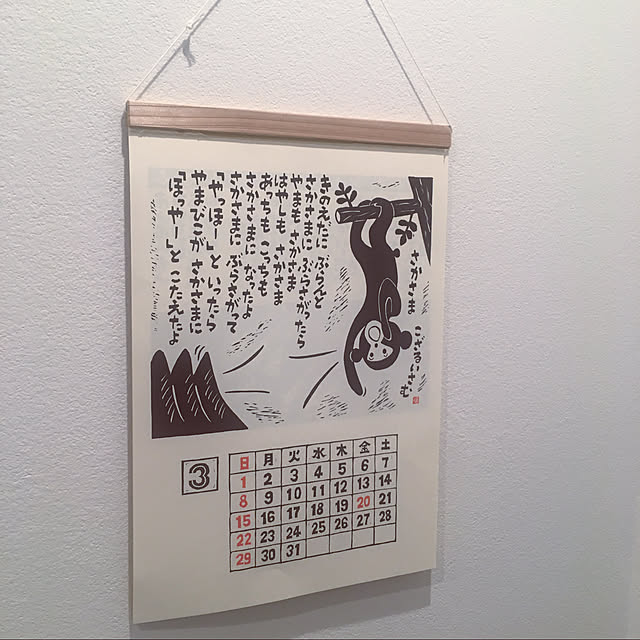 さかさま こざるいさむ
きのえだに ぶらんと
さかさまに ぶらさがったら
やまも さかさま
はやしも さかさま
あっちも こっちも
さかさまに なったよ
さかさまに ぶらさがって
「やっほー」と いったら
やまびこが さかさまに
「ほっやー」と こたえたよ
3
日 月 火 水 木 金 土
1 2 3 4 5 6 7
8 9 10 11 12 13 14
15 16 17 18 19 20 21
22 23 24 25 26 27 28
29 30 31